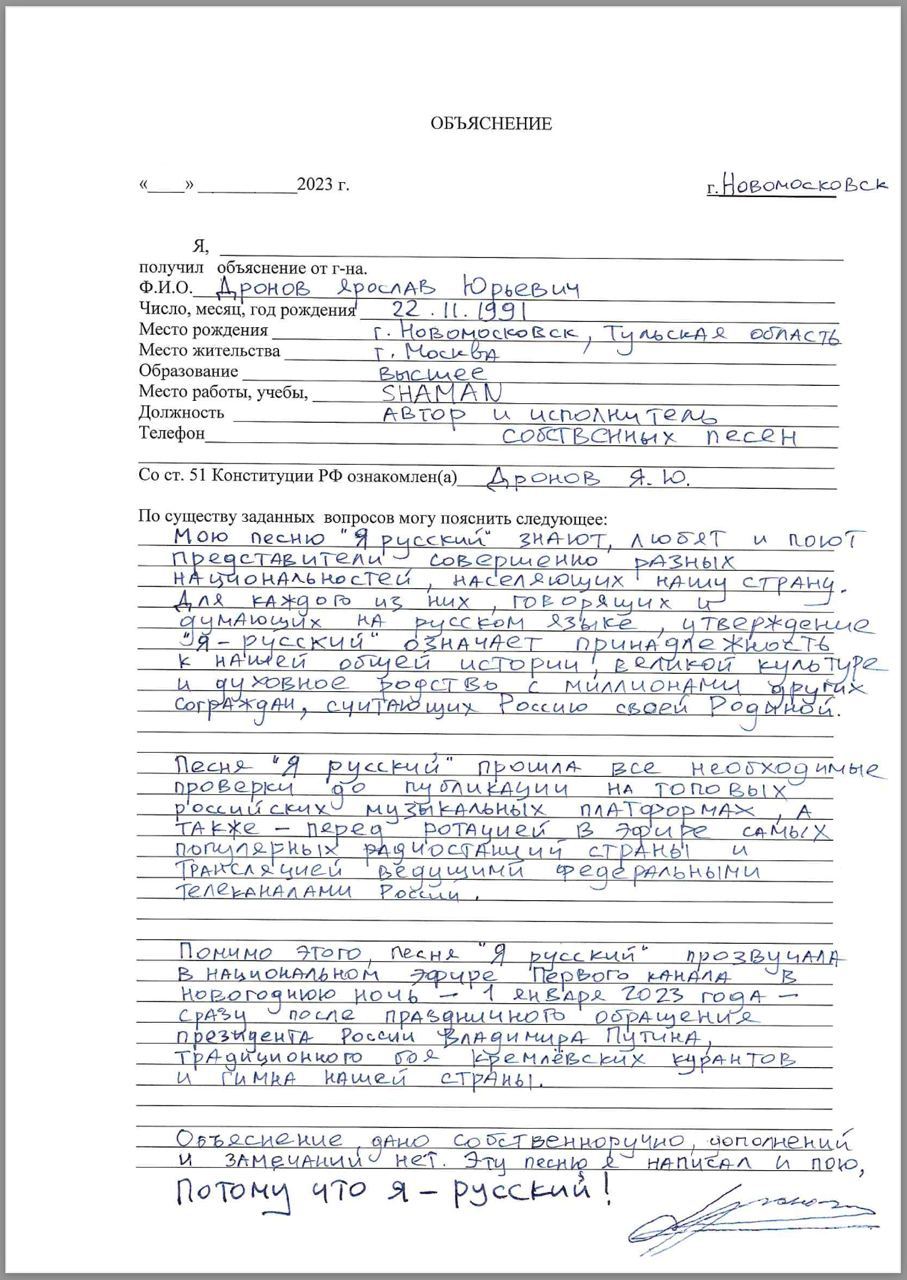 ОБЪЯСНЕНИЕ
«____» ___________2023 г. г. Новомосковск
Я,
получил объяснение от г-на.
Ф.И.О. Дронов Ярослав Юрьевич
Число, месяц, год рождения 22.11.1991
Место рождения г. Новомосковск, Тульская область
Место жительства г. Москва
Образование высшее
Место работы, учебы, SHAMAN
Должность автор и исполнитель
Телефон собственных песен
Со ст. 51 Конституции РФ ознакомлен(а) Дронов Я.Ю.
По существу заданных вопросов могу пояснить следующее:
Мою песню "Я русский" знают, любят и поют
представители совершенно разных
национальностей, населяющих нашу страну.
Для каждого из них, говорящих и
думающих на русском языке, утверждение
"Я - русский" означает принадлежность
к нашей общей истории, великой культуре
и духовное родство с миллионами других
сограждан, считающих Россию своей Родиной.
Песня "Я русский" прошла все необходимые
проверки до публикации на топовых
российских музыкальных платформах, а
также - перед ротацией в эфире самых
популярных радиостанций страны и
трансляцией ведущими федеральными
телеканалами России.
Помимо этого, песня "Я русский" прозвучала
в национальном эфире Первого канала в
новогоднюю ночь - 1 января 2023 года -
сразу после праздничного обращения
президента России Владимира Путина,
традиционного боя кремлёвских курантов
и гимна нашей страны.
Объяснение дано собственноручно, дополнений
и замечаний нет. Эту песню я написал и пою,
потому что я - русский!